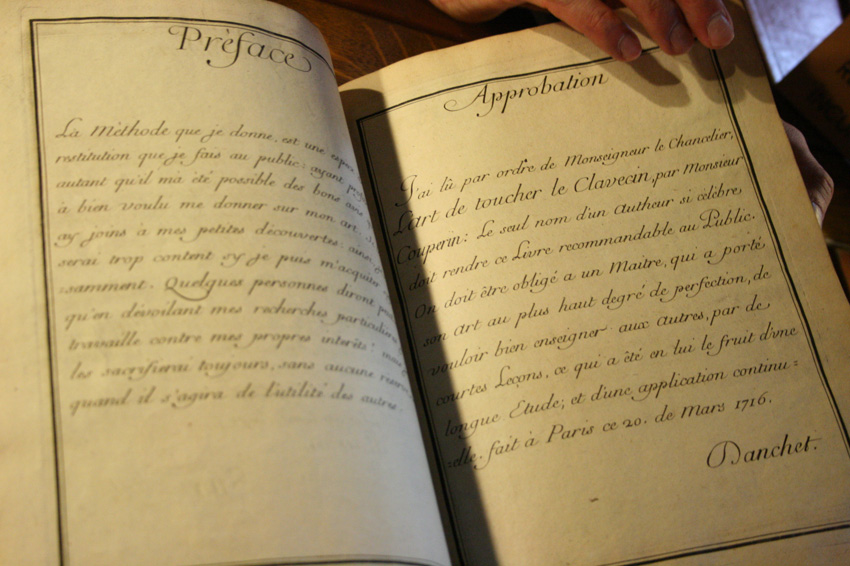 Préface
La Méthode que je donne, est une
restitution que je fais au public; ayant
autant qu'il m'a été possible des bons avis
à bien voulu me donner sur mon art. Je
ay joins à mes petites découvertes: ainsi
serai trop content sy je puis m'acquiter
=samment. Quelques personnes diront peut
qu'en dévoilant mes recherches particulieres
travaille contre mes propres interêts: mais
les sacrifierai toujours, sans aucune
quand il s'agira de l'utilité des autres.
Approbation
J'ai lû par ordre de Monseigneur le Chancelier,
L'art de toucher le Clavecin, par Monsieur
Couperin: Le seul nom d'un Autheur si célébre
doit rendre ce Livre recommandable au Public.
On doit être obligé a un Maitre, qui a porté
son art au plus haut degré de perfection, de
vouloir bien enseigner aux autres, par de
courtes Leçons, ce qui a été en lui le fruit d'vne
longue Etude; et d'une application continu=
=elle. fait à Paris ce 20. de Mars 1716.
Danchet.